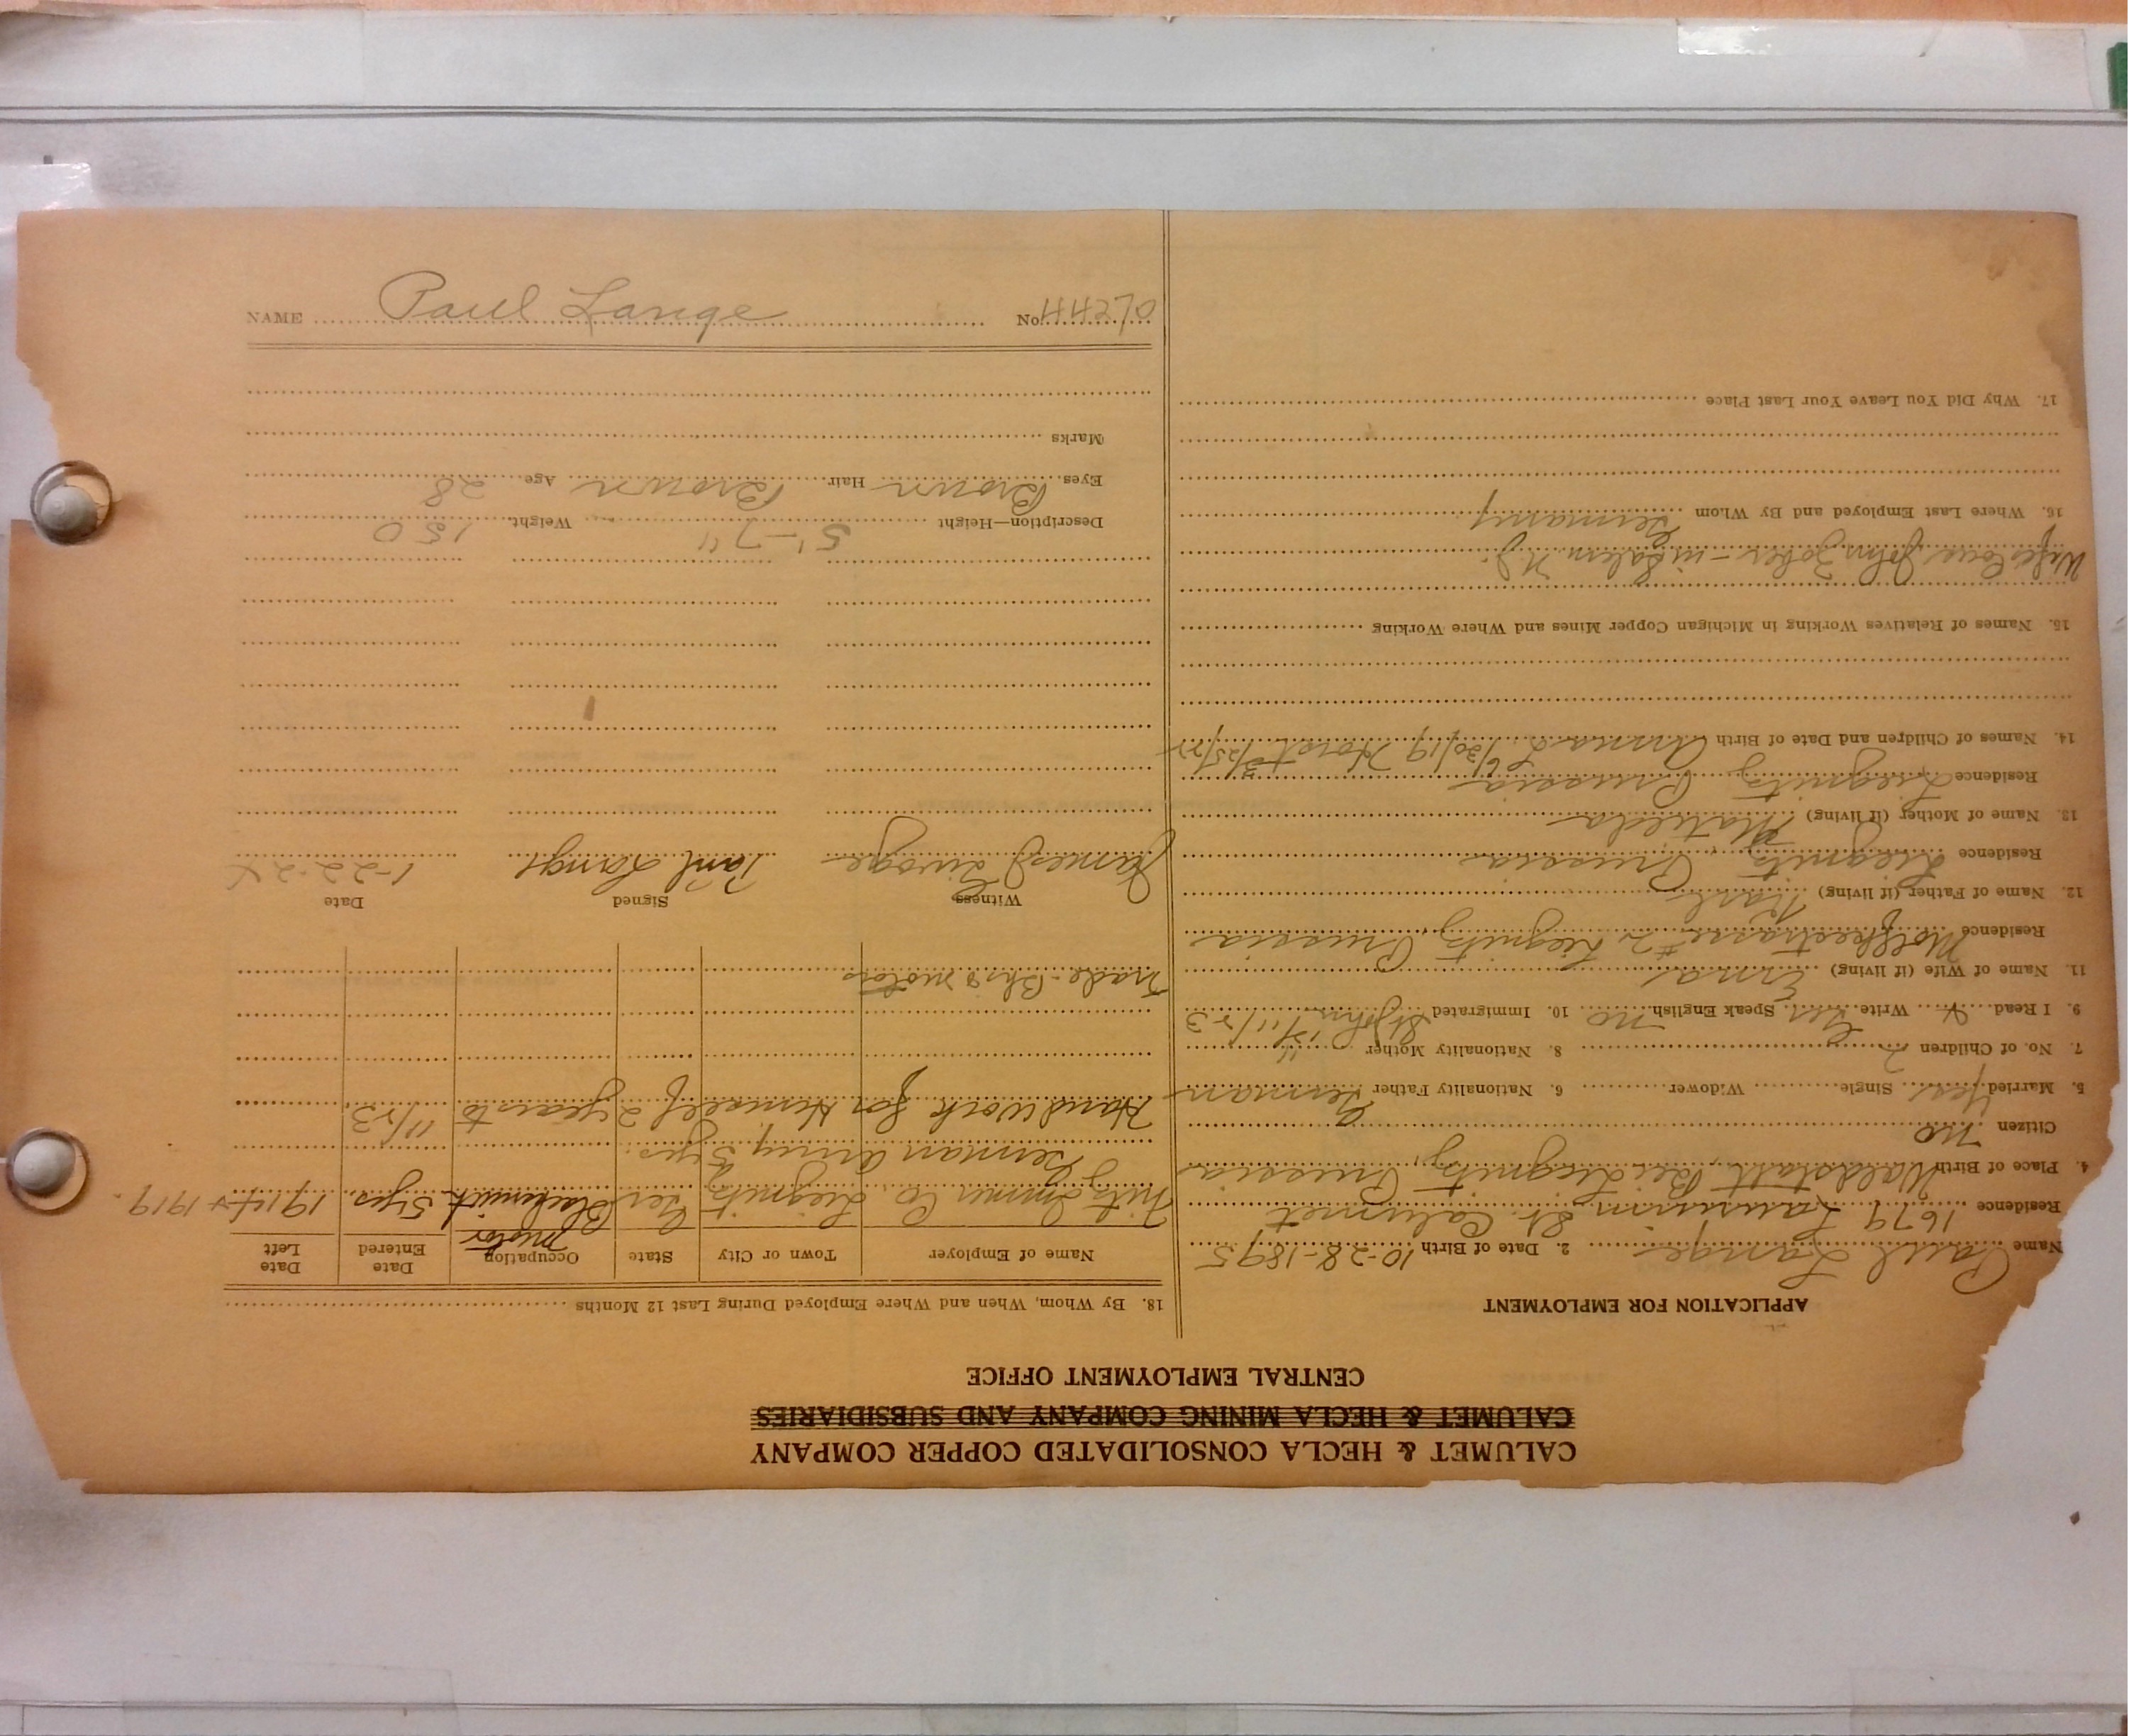 CALUMET & HECLA CONSOLIDATED COPPER COMPANY
CALUMET & HECLA MINING COMPANY AND SUBSIDIARIES
CENTRAL EMPLOYMENT OFFICE
APPLICATION FOR EMPLOYMENT
Name Paul Lange 2. Date of Birth 10-28-1895
Residence 1679 Laurium St. Calumet
4. Place of Birth Waldstatt Bei Liegnitz, Prussia
Citizen no
5. Married Yes Single Widower 6. Nationality Father German
7. No. of Children 2 8. Nationality Mother "
9. I Read Write Ger Speak English no 10. Immigrated St John 12/11/23
11. Name of Wife (if living) Erna
Residence Moltkestrasse #2 Liegnitz, Prussia
12. Name of Father (if living) Karl
Residence Liegnitz Prussia
13. Name of Mother (if living) Matilda
Residence Liegnitz, Prussia
14. Names of Children and Date of Birth Anna L 6/30/19 Horst 3/25/22
15. Names of Relatives Working in Michigan Copper Mines and Where Working
Wife's John - in Salem N.J.
16. Where Last Employed and By Whom Germany
17. Why Did You Leave Your Last Place
18. By Whom, When and Where Employed During Last 12 Months
Name of Employer Town or City State Occupation Date Entered Date Left
Motor
Fritz Co. Liegnitz Ger Blacksmith 5 yrs. 1914 1919
German army 5 yrs.
Hand work for Himself 2 years to 11/23
Trade - Blks motors
Witness Signed Date
James Paul Lange 1-22-24
Description—Height 5'-7" Weight 150
Eyes Brown Hair Brown Age 28
Marks
NAME Paul Lange No. 44270